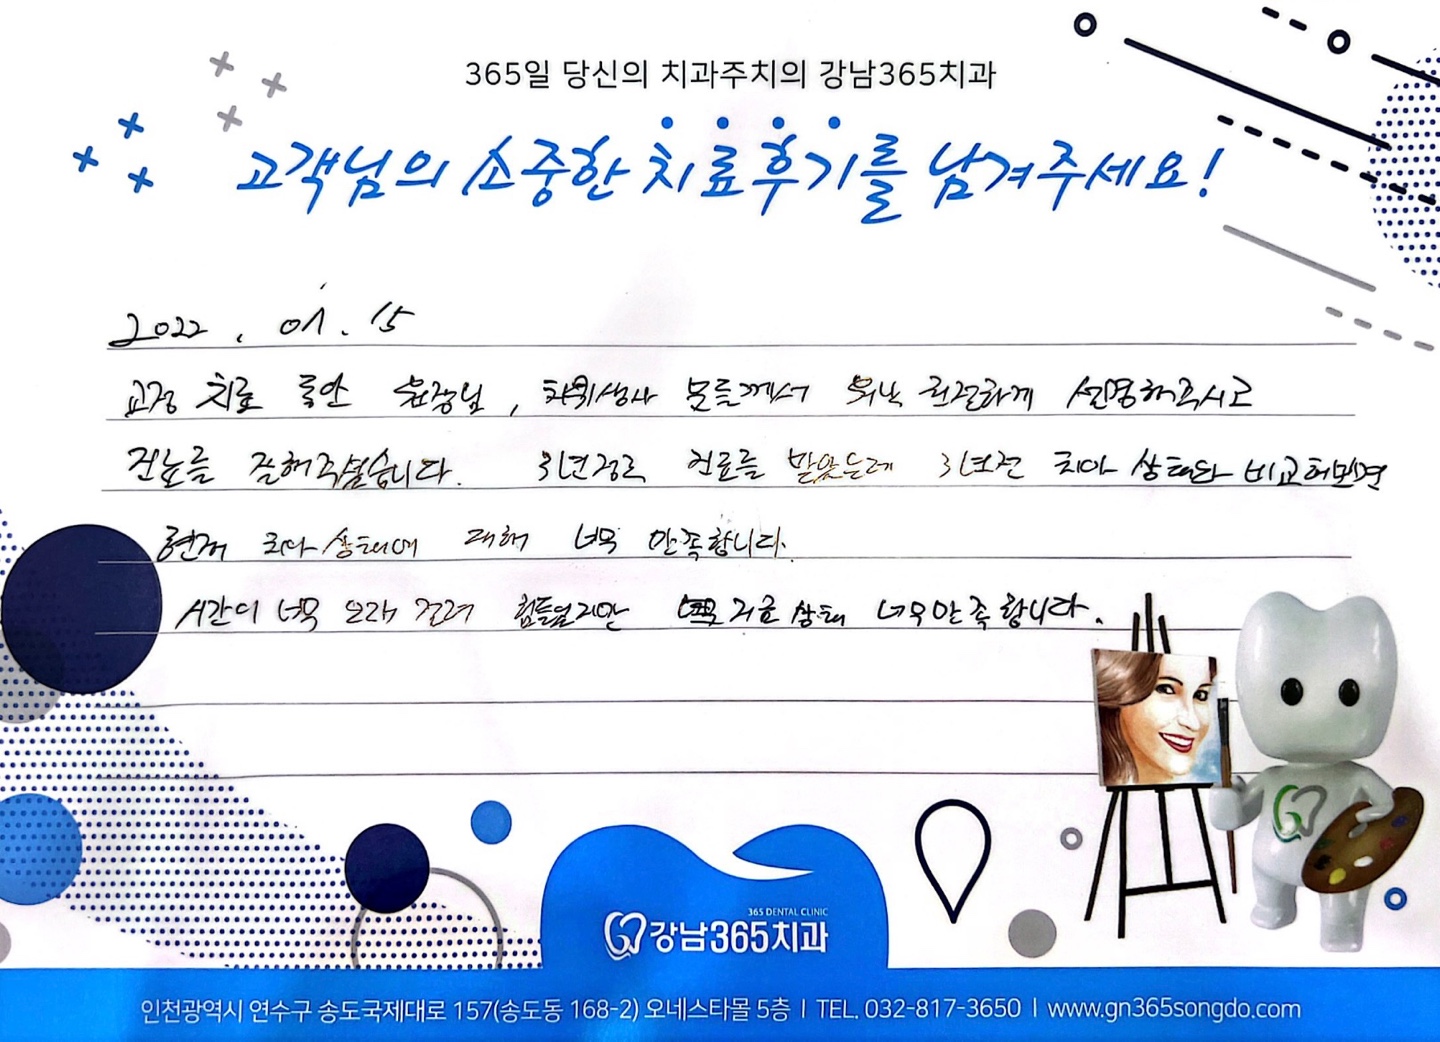 365일 당신의 치과주치의 강남365치과
고객님의 소중한 치료후기를 남겨주세요!
2022. 01. 15
교정 치료 동안 원장님, 치위생사 분들께서 워낙 친절하게 설명해주시고
진료를 잘해주셨습니다. 3년정도 진료를 받았는데 3년전 치아 상태와 비교해보면
현재 치아상태에 대해 너무 만족합니다.
시간이 너무 오래 걸려 힘들었지만 지금 상태 너무만족합니다.
365 DENTAL CLINIC
강남365치과
인천광역시 연수구 송도국제대로 157(송도동 168-2) 오네스타몰 5층 I TEL. 032-817-3650 I www.gn365songdo.com